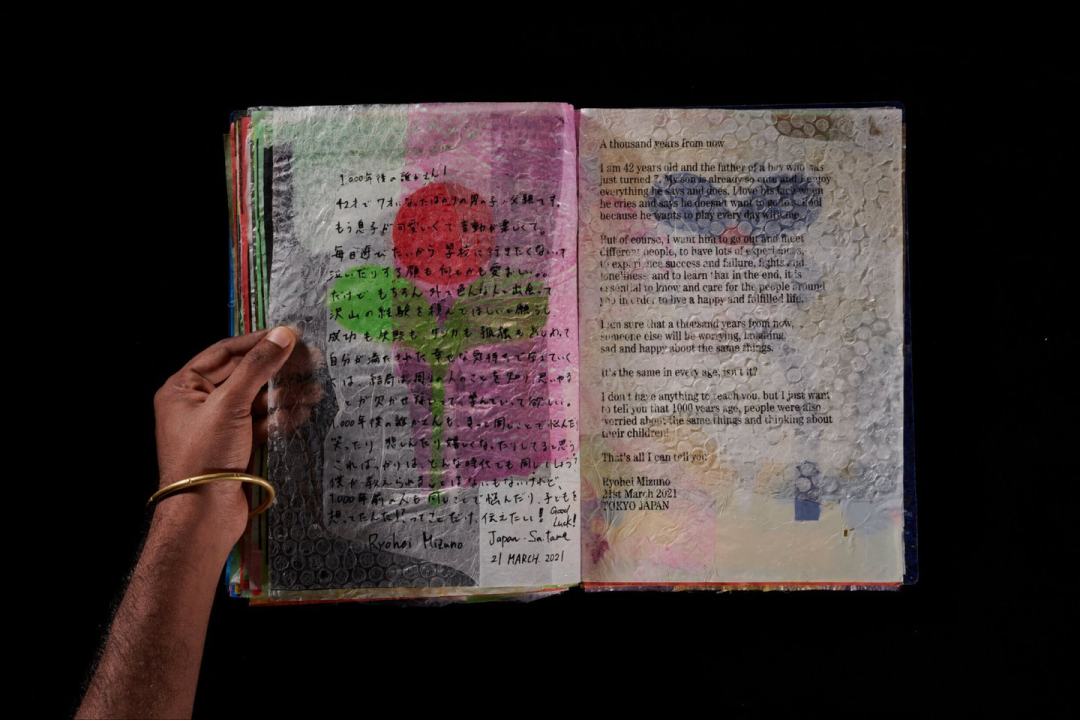 1000年後の誰かさん!
42才で 7才になったばかりの男の子の父親です。
もう息子が可愛いくて 言動が楽しくて。
毎日遊びたいから 学校に行きたくないって
泣いたりする顔も 何もかも愛おしい。
だけど もちろん 外で色んな人と出会って
沢山の経験を積んでほしいと願うし
成功も失敗も ケンカも 孤独も
自分が満たされた幸せな気持ちで生きていく
には 結局は周りの人のことを知り 思いやる
ことが欠かせないって 学んでいって欲しい。
1,000年後の誰かさんも、きっと同じことで悩んだり
笑ったり 悲しんだり 嬉しくなったりしてると思う
こればっかりは、どんな時代でも同じでしょう?
僕が教えられることはなにもないけれど、
1000年前の人も同じことで悩んだり、子どもを
想ってたんだ!ってことだけ、伝えたい! Good Luck!
Ryohei Mizuno
Japan. Saitama
21 MARCH. 2021
A thousand years from now
I am 42 years old and the father of a boy who has
just turned 7. My son is already so cute and I enjoy
everything he says and does. I love his face when
he cries and says he doesn't want to go to school
because he wants to play every day with me.
But of course, I want him to go out and meet
different people, to have lots of experiences,
to experience success and failure, fights and
loneliness and to learn that in the end, it is
essential to know and care for the people around
you in order to live a happy and fulfilled life.
I am sure that a thousand years from now,
someone else will be worrying, laughing,
sad and happy about the same things.
It's the same in every age, isn't it?
I don't have anything to teach you, but I just want
to tell you that 1000 years ago, people were also
worried about the same things and thinking about
their children!
That's all I can tell you
Ryohei Mizuno
21st March 2021
TOKYO JAPAN